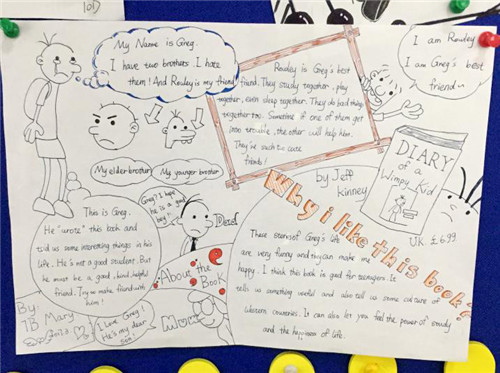 My Name is Greg.
I have two brothers. I hate
them! And Rowley is my friend
My elder brother
My younger brother
Rowley is Greg's best
friend. They study together, play
together, even sleep together. They do bad things
together too. Sometime if one of them get
into trouble, the other will help him.
They're such cute
friends!
I am Rowley
I am Greg's best
friend~
by Jeff
kinney
DIARY
of a
Wimpy Kid
UK £6.99
This is Greg.
He "wrote" this book and
told us some interesting things in his
life. He's not a good student. But
he must be a good, kind, helpful
friend. Try to make friend with
him!
Greg? I hope
he is a good
boy
Dad
About the
Book
Mum
I Love Greg!
He's my dear
son
By:
7B Mary
Why i like this book?
These stories of Greg's life
are very funny and they can make me
happy. I think this book is good for teenagers. It
tells us something useful and also tell us some culture of
Western countries. It can also let you feel the power of comedy
and the happiness of life.